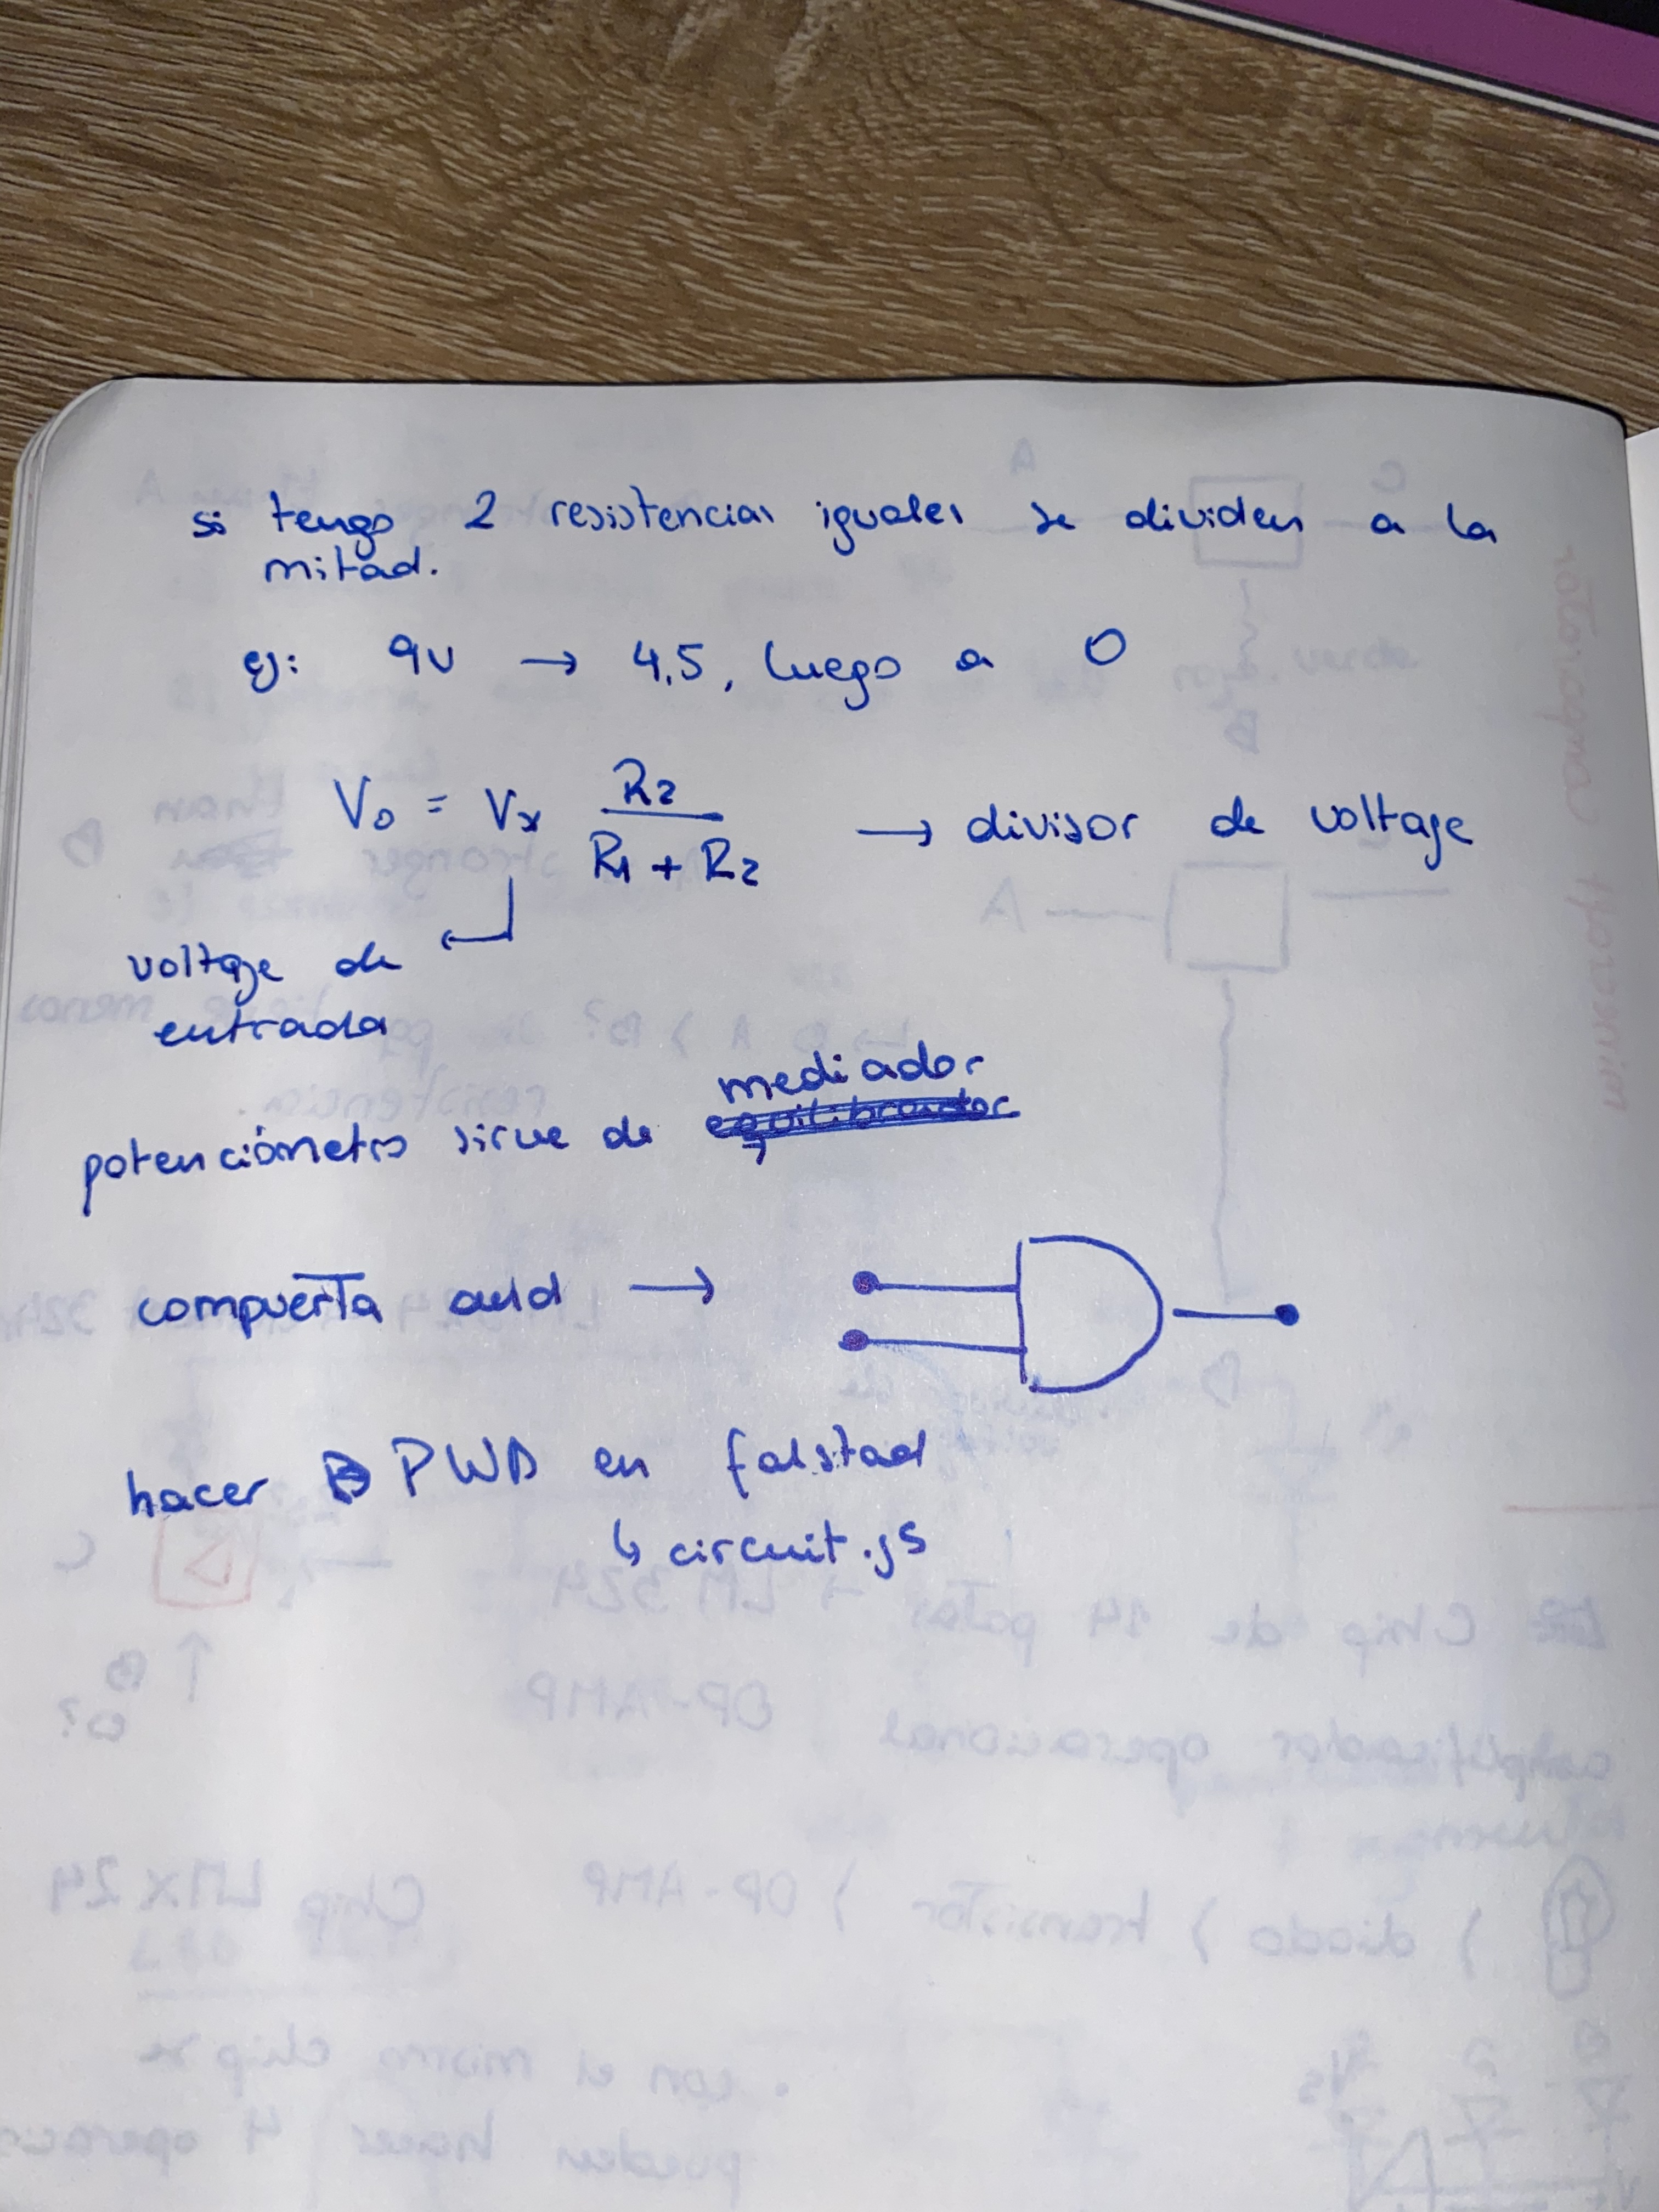 si tengo 2 resistencias iguales se dividen a la
mitad.
ej: 9v → 4,5, luego a 0
V₀ = Vₓ R₂ / R₁ + R₂ → divisor de voltage
voltage de
entrada
mediador
potenciómetro sirve de equilibrador
compuerta and →
hacer PWD en falstad
↳ circuit.js